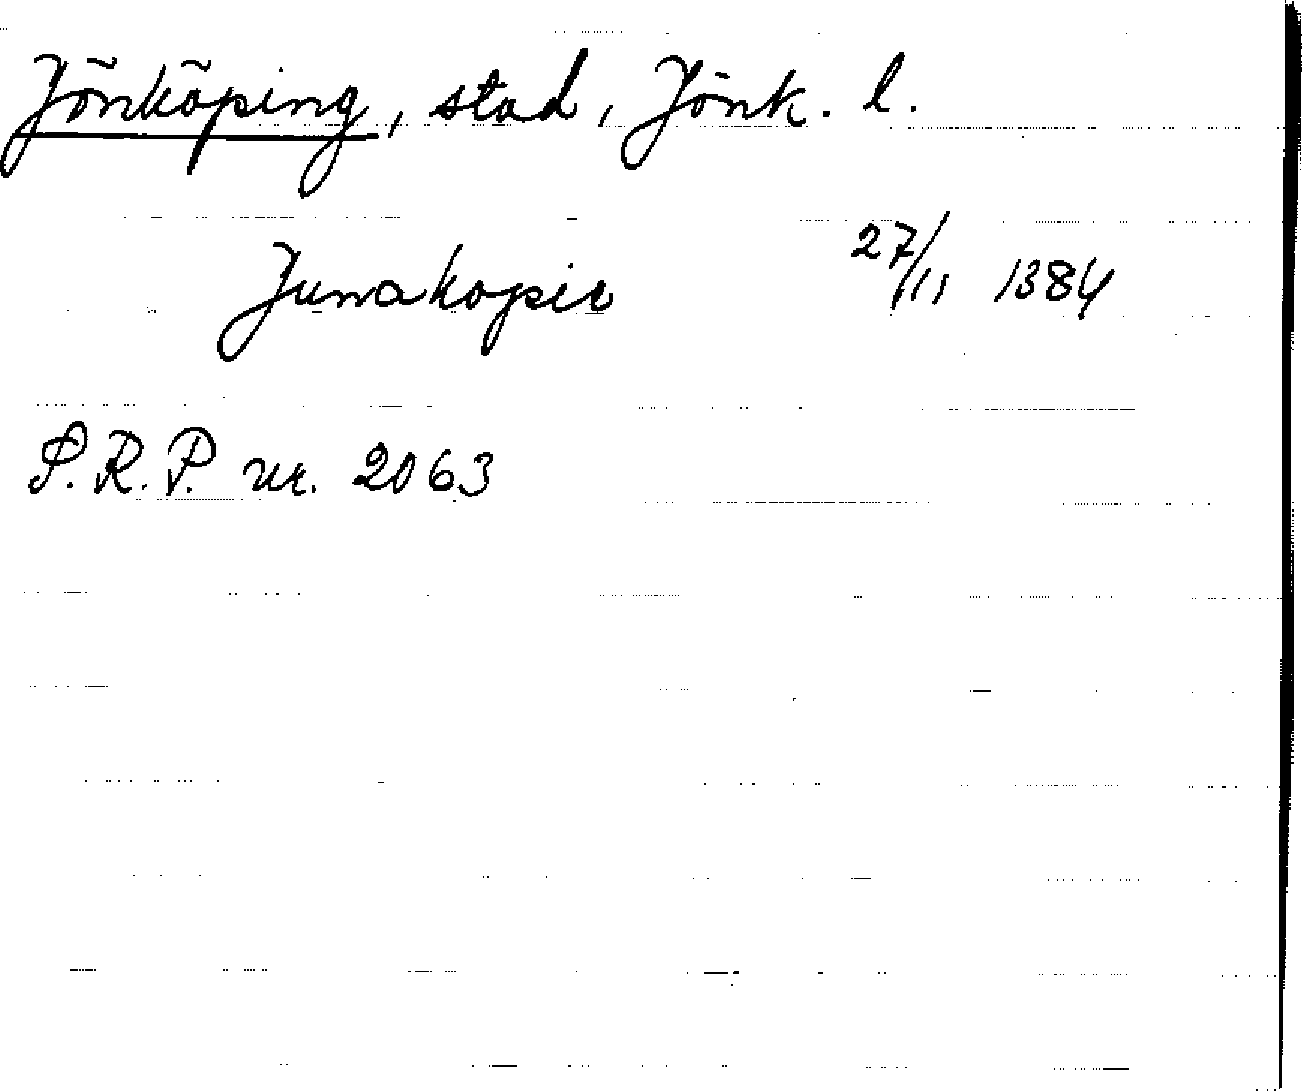 Jönköping, stad, Jönk. l.
Junakopie 27/11 1384
S.R.P. nr. 2063